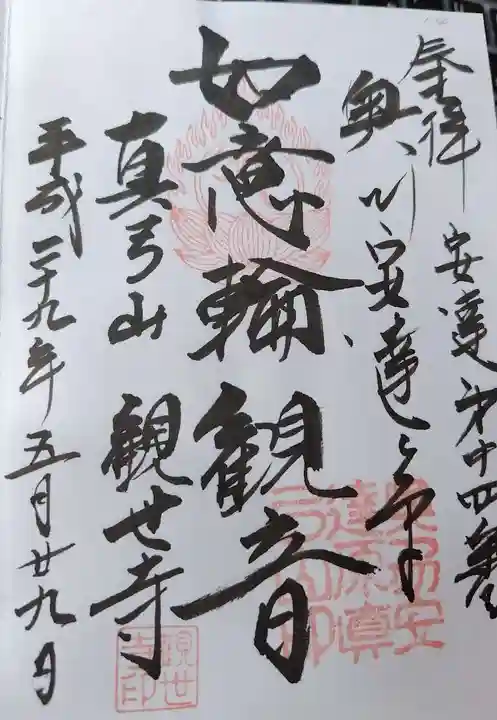 奉拝
安達第十四番
奥州安達ヶ原
如意輪観音
真弓山 観世寺
平成二十九年五月廿九日
観世寺印